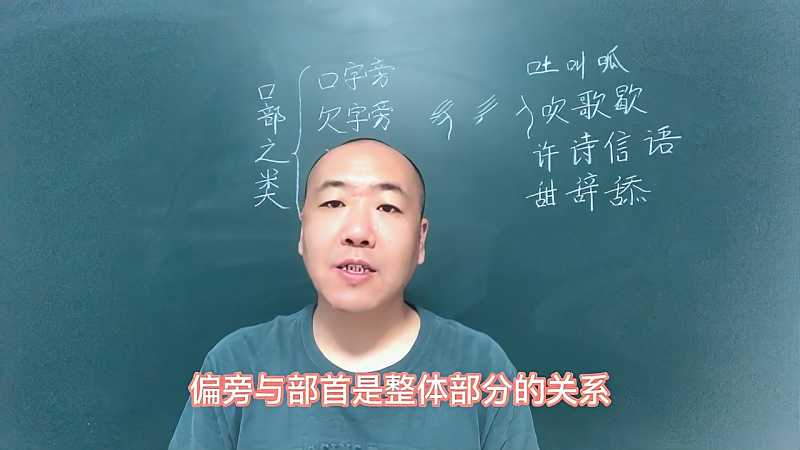 口部之类
口字旁
欠字旁
吐叫呱
吹歌歇
许诗信语
甜辞舔
偏旁与部首是整体部分的关系